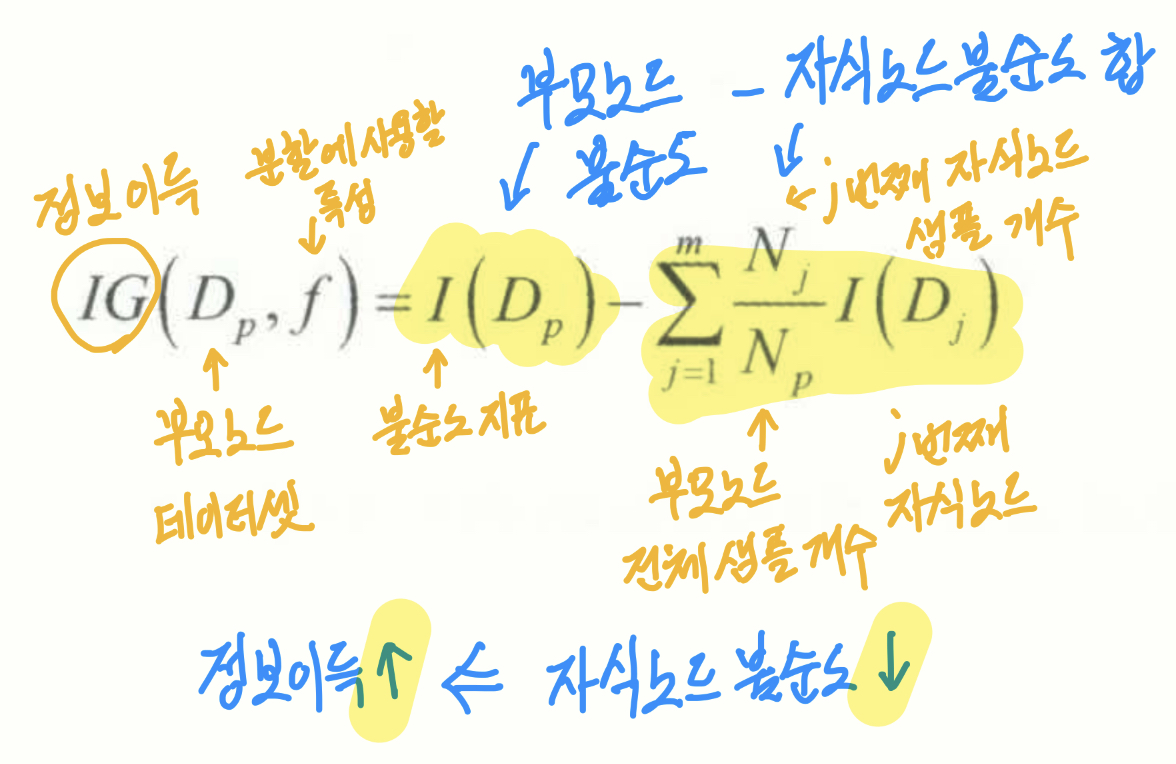 부모노드 - 자식노드불순도 합
불순도
분할에사용할
특성
정보이득
j번째 자식노드
샘플 개수
IG(D_p, f) = I(D_p) - \sum_{j=1}^{m} \frac{N_j}{N_p} I(D_j)
부모노드
데이터셋
불순도지표
부모노드
전체샘플개수
j번째
자식노드
정보이득↑ ⇐ 자식노드 불순도↓